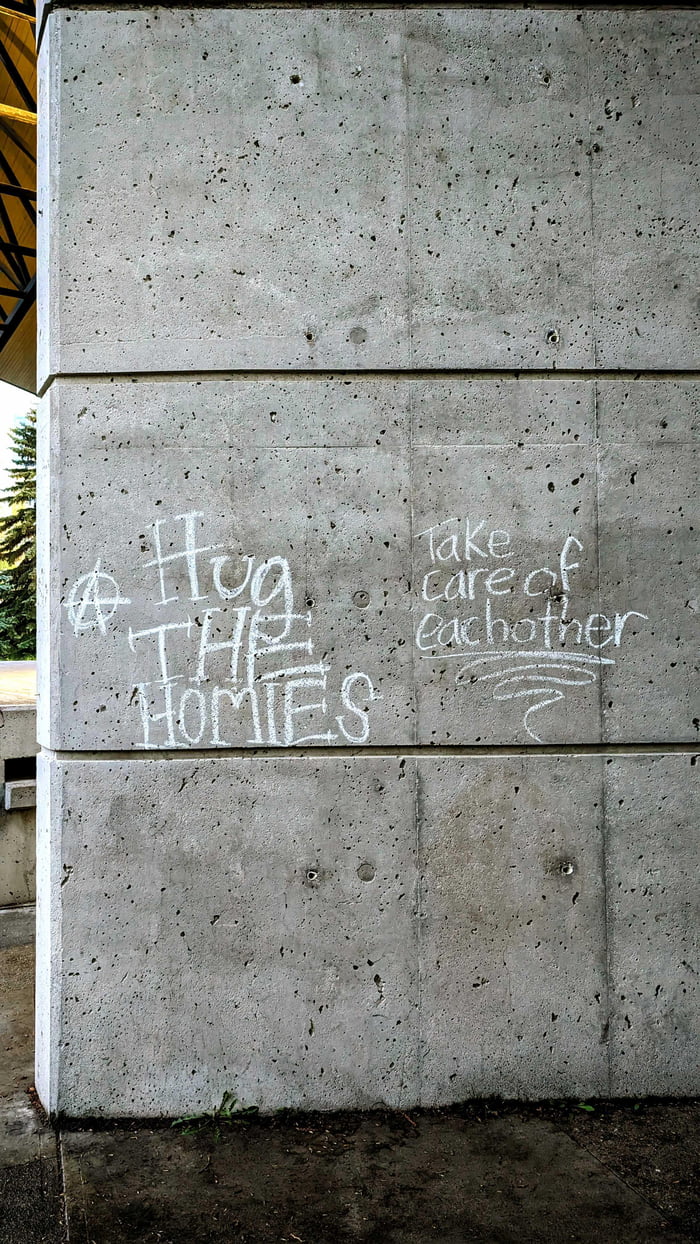 Ⓐ Hug
THE
HOMIES
Take
care of
eachother